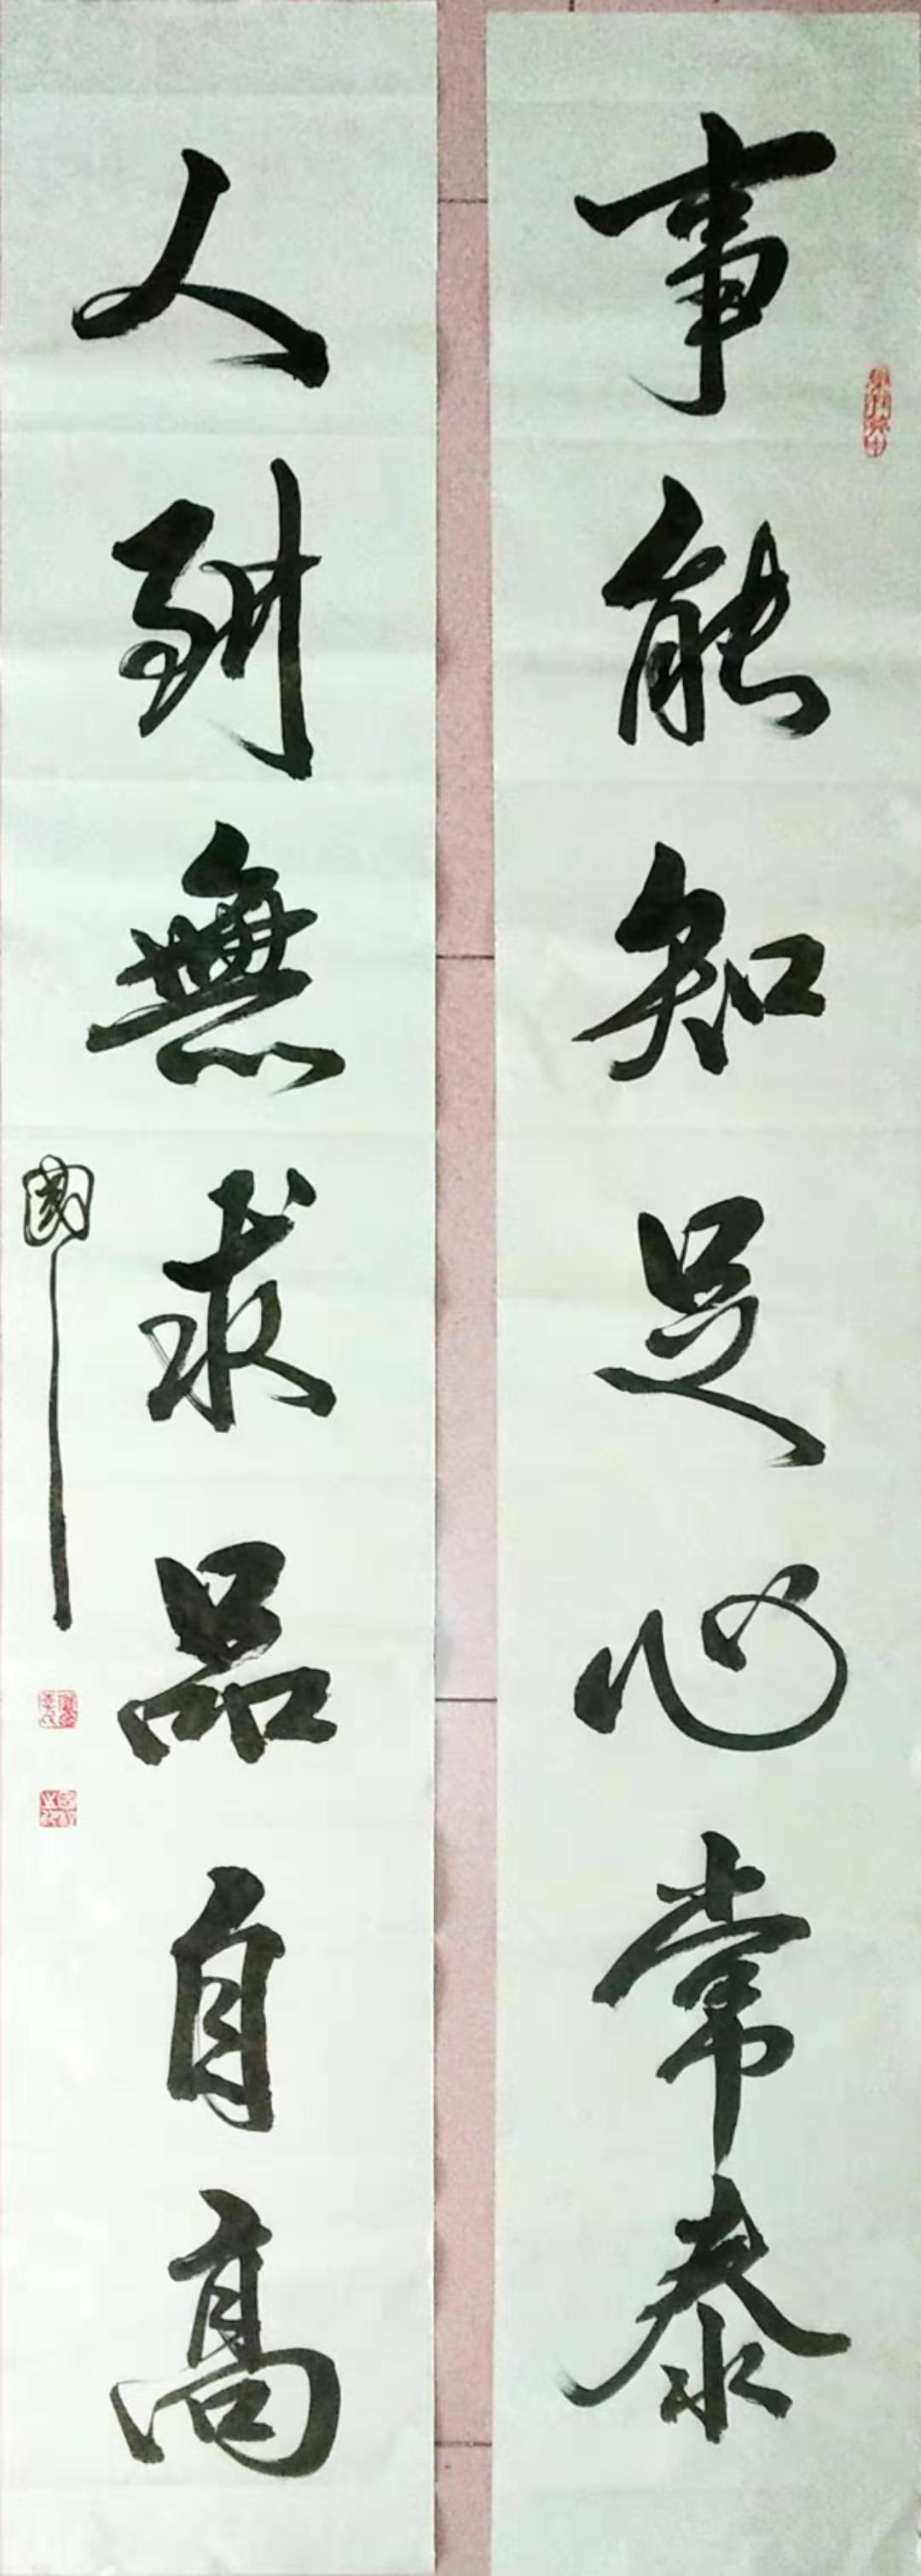 事能知足心常泰
人到無求品自高
國